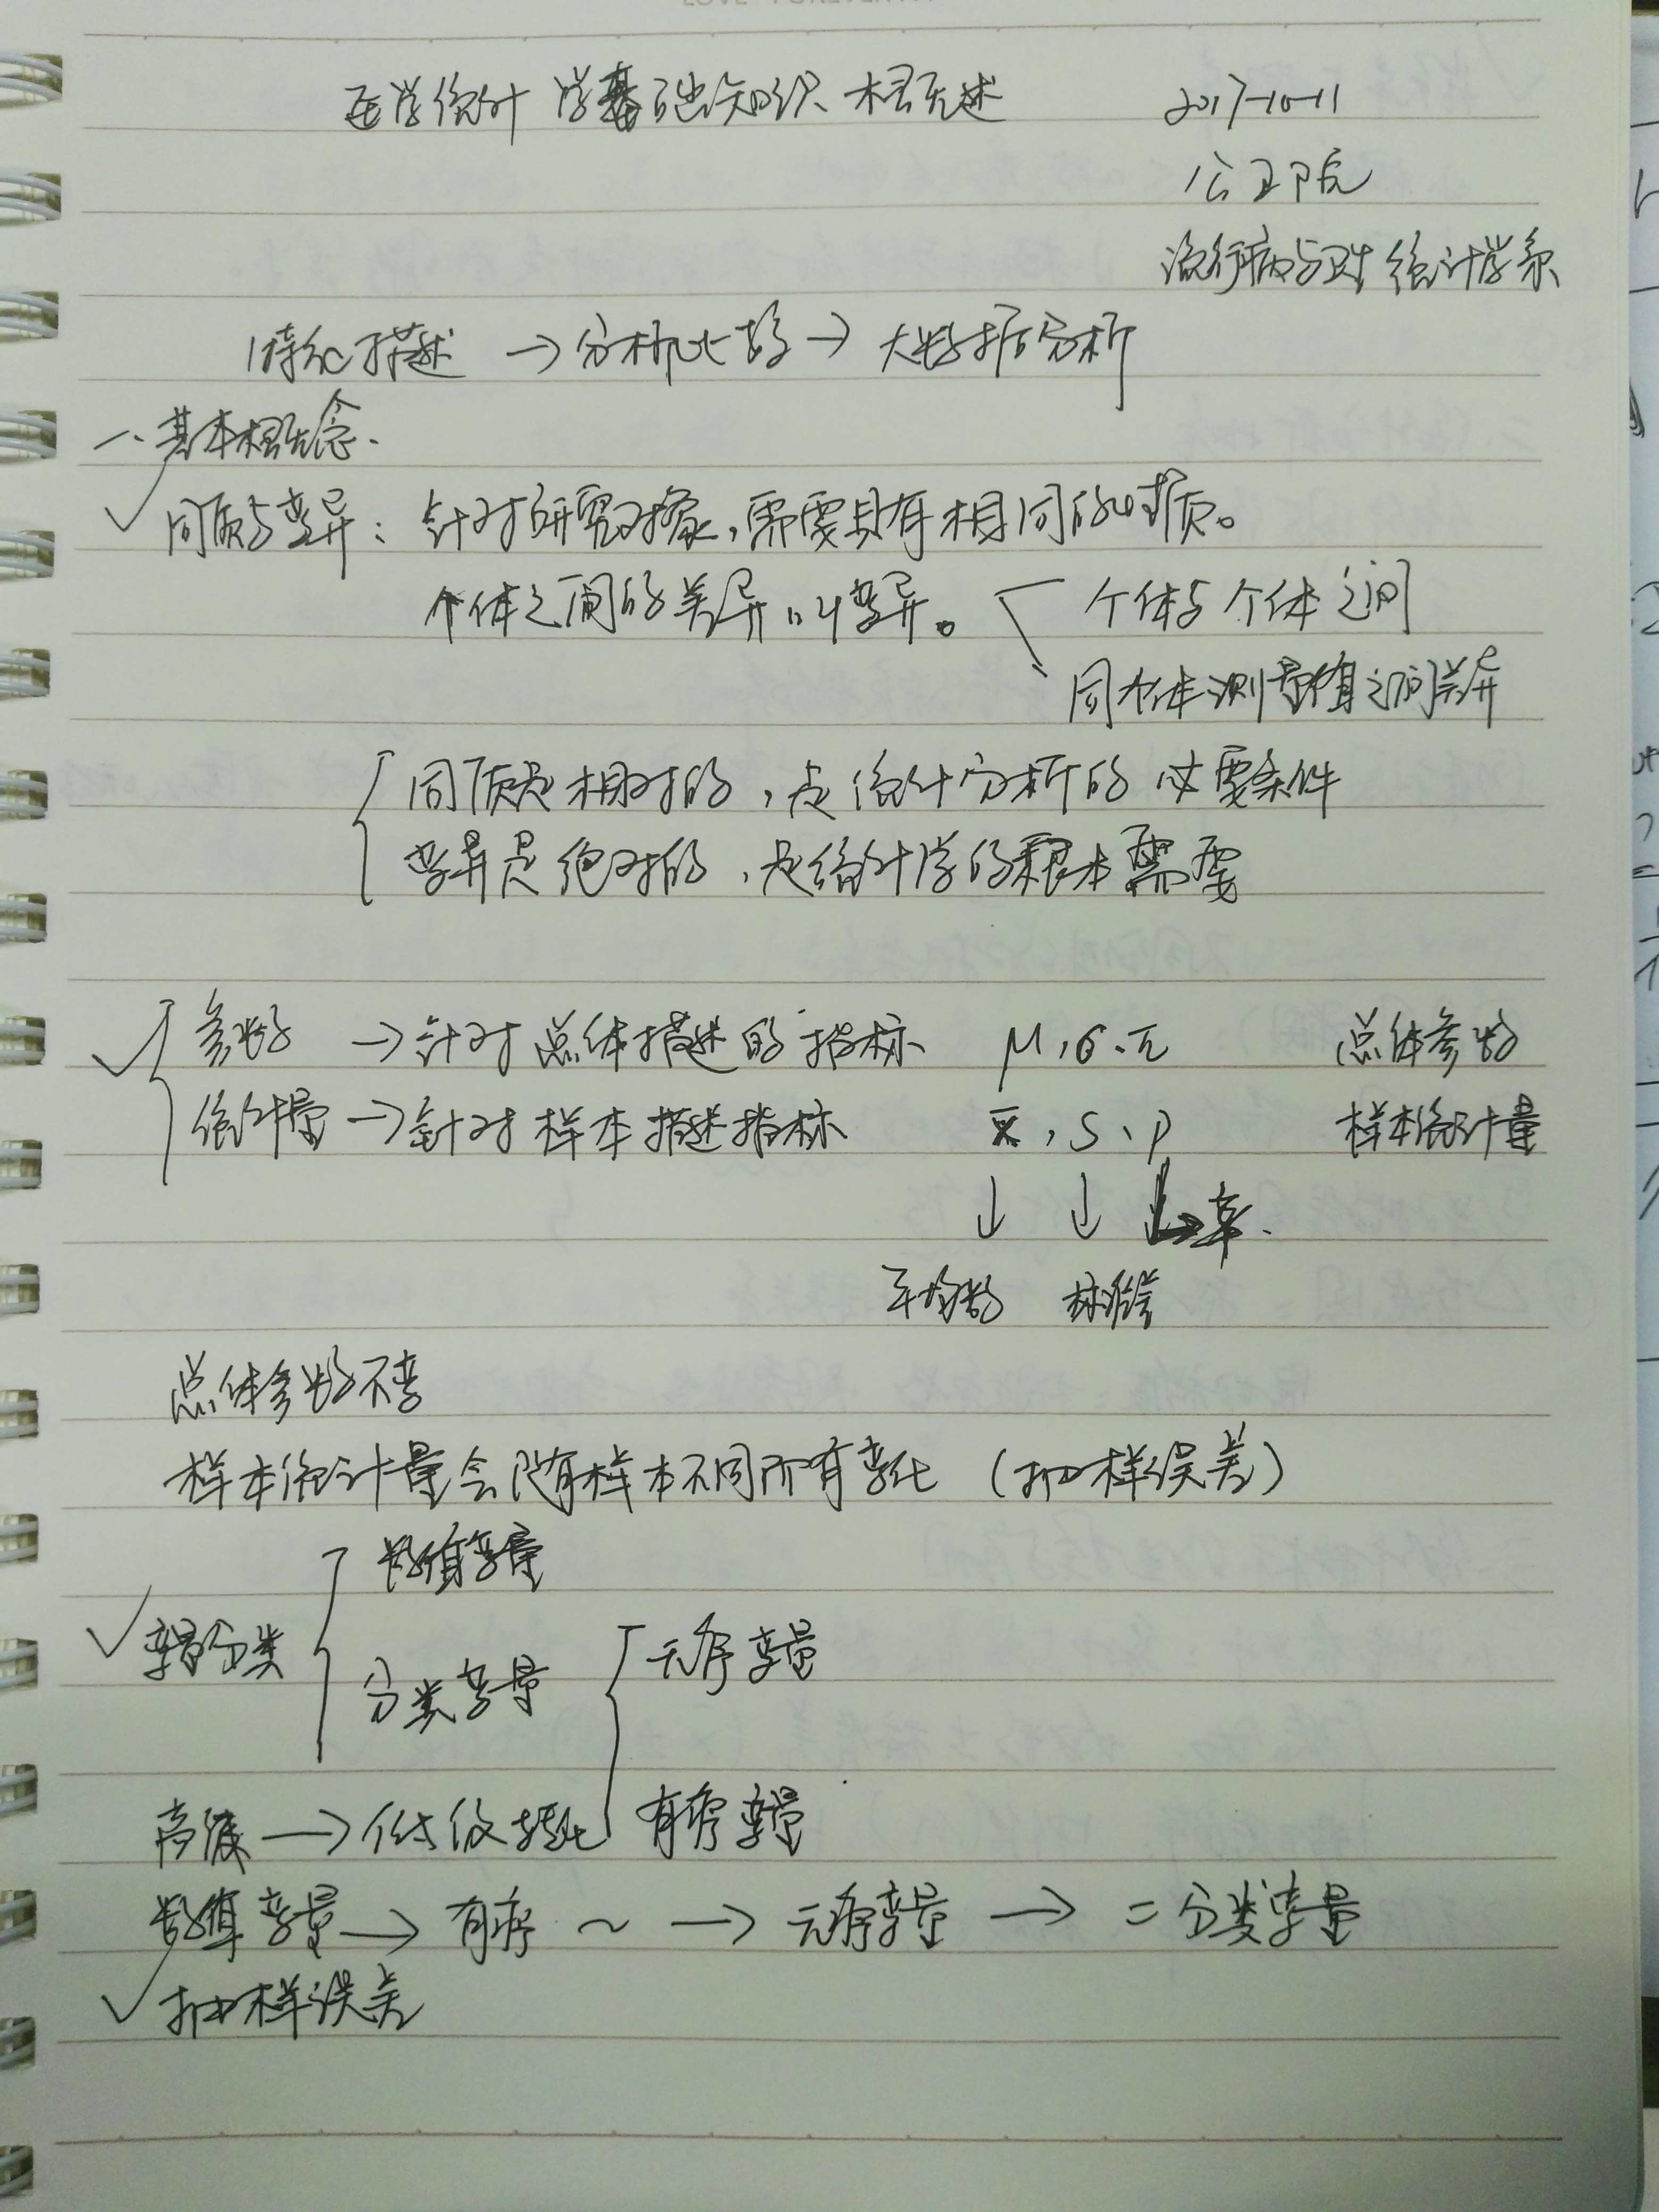 医学统计学基础知识概述 2017-10-11
公卫学院
流行病与卫生统计学系
特征描述 → 分析比较 → 大数据分析
一、基本概念.
✓ 同质与变异：针对研究对象，需要具有相同的性质。
个体之间的差异叫变异。 个体与个体之间
同个体测量值之间差异
同质是相对的，是统计分析的必要条件
变异是绝对的，是统计学的根本需要
✓ 参数 → 针对总体描述的指标 μ,σ、π 总体参数
统计量 → 针对样本描述指标 x̄,S、p 样本统计量
↓ ↓ → 率.
平均数 标准差
总体参数不变
样本统计量会随样本不同所有变化（抽样误差）
数值变量
✓ 变量分类 无序变量
分类变量
高级 → 低级转化 有序变量
数值变量 → 有序 ~ → 无序变量 → 二分类变量
✓ 抽样误差